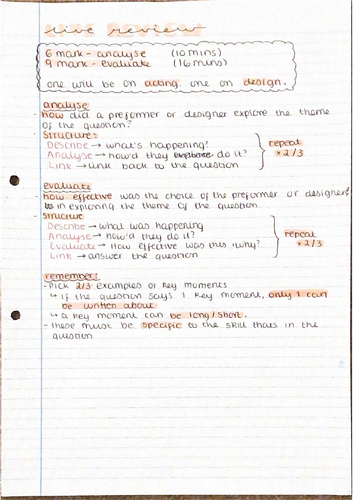 live review
6 mark - analyse (10 mins)
9 mark - evaluate (16 mins)
one will be on acting. one on design.
analyse
- how did a preformer or designer explore the theme
of the question?
- Structure:
Describe → what's happening?
Analyse → how'd they explore do it?
Link → link back to the question
repeat
×2/3
evaluate
- how effective was the choice of the preformer or designer
in exploring the theme of the question
- Structure
Describe → what was happening
Analyse → how'd they do it?
Evaluate → How effective was this? why?
Link → answer the question
repeat
×2/3
remember:
- Pick 2/3 examples or key moments
↳ if the question says 1 key moment, only 1 can
be written about
↳ a key moment can be long/short.
- these must be specific to the skill thats in the
question